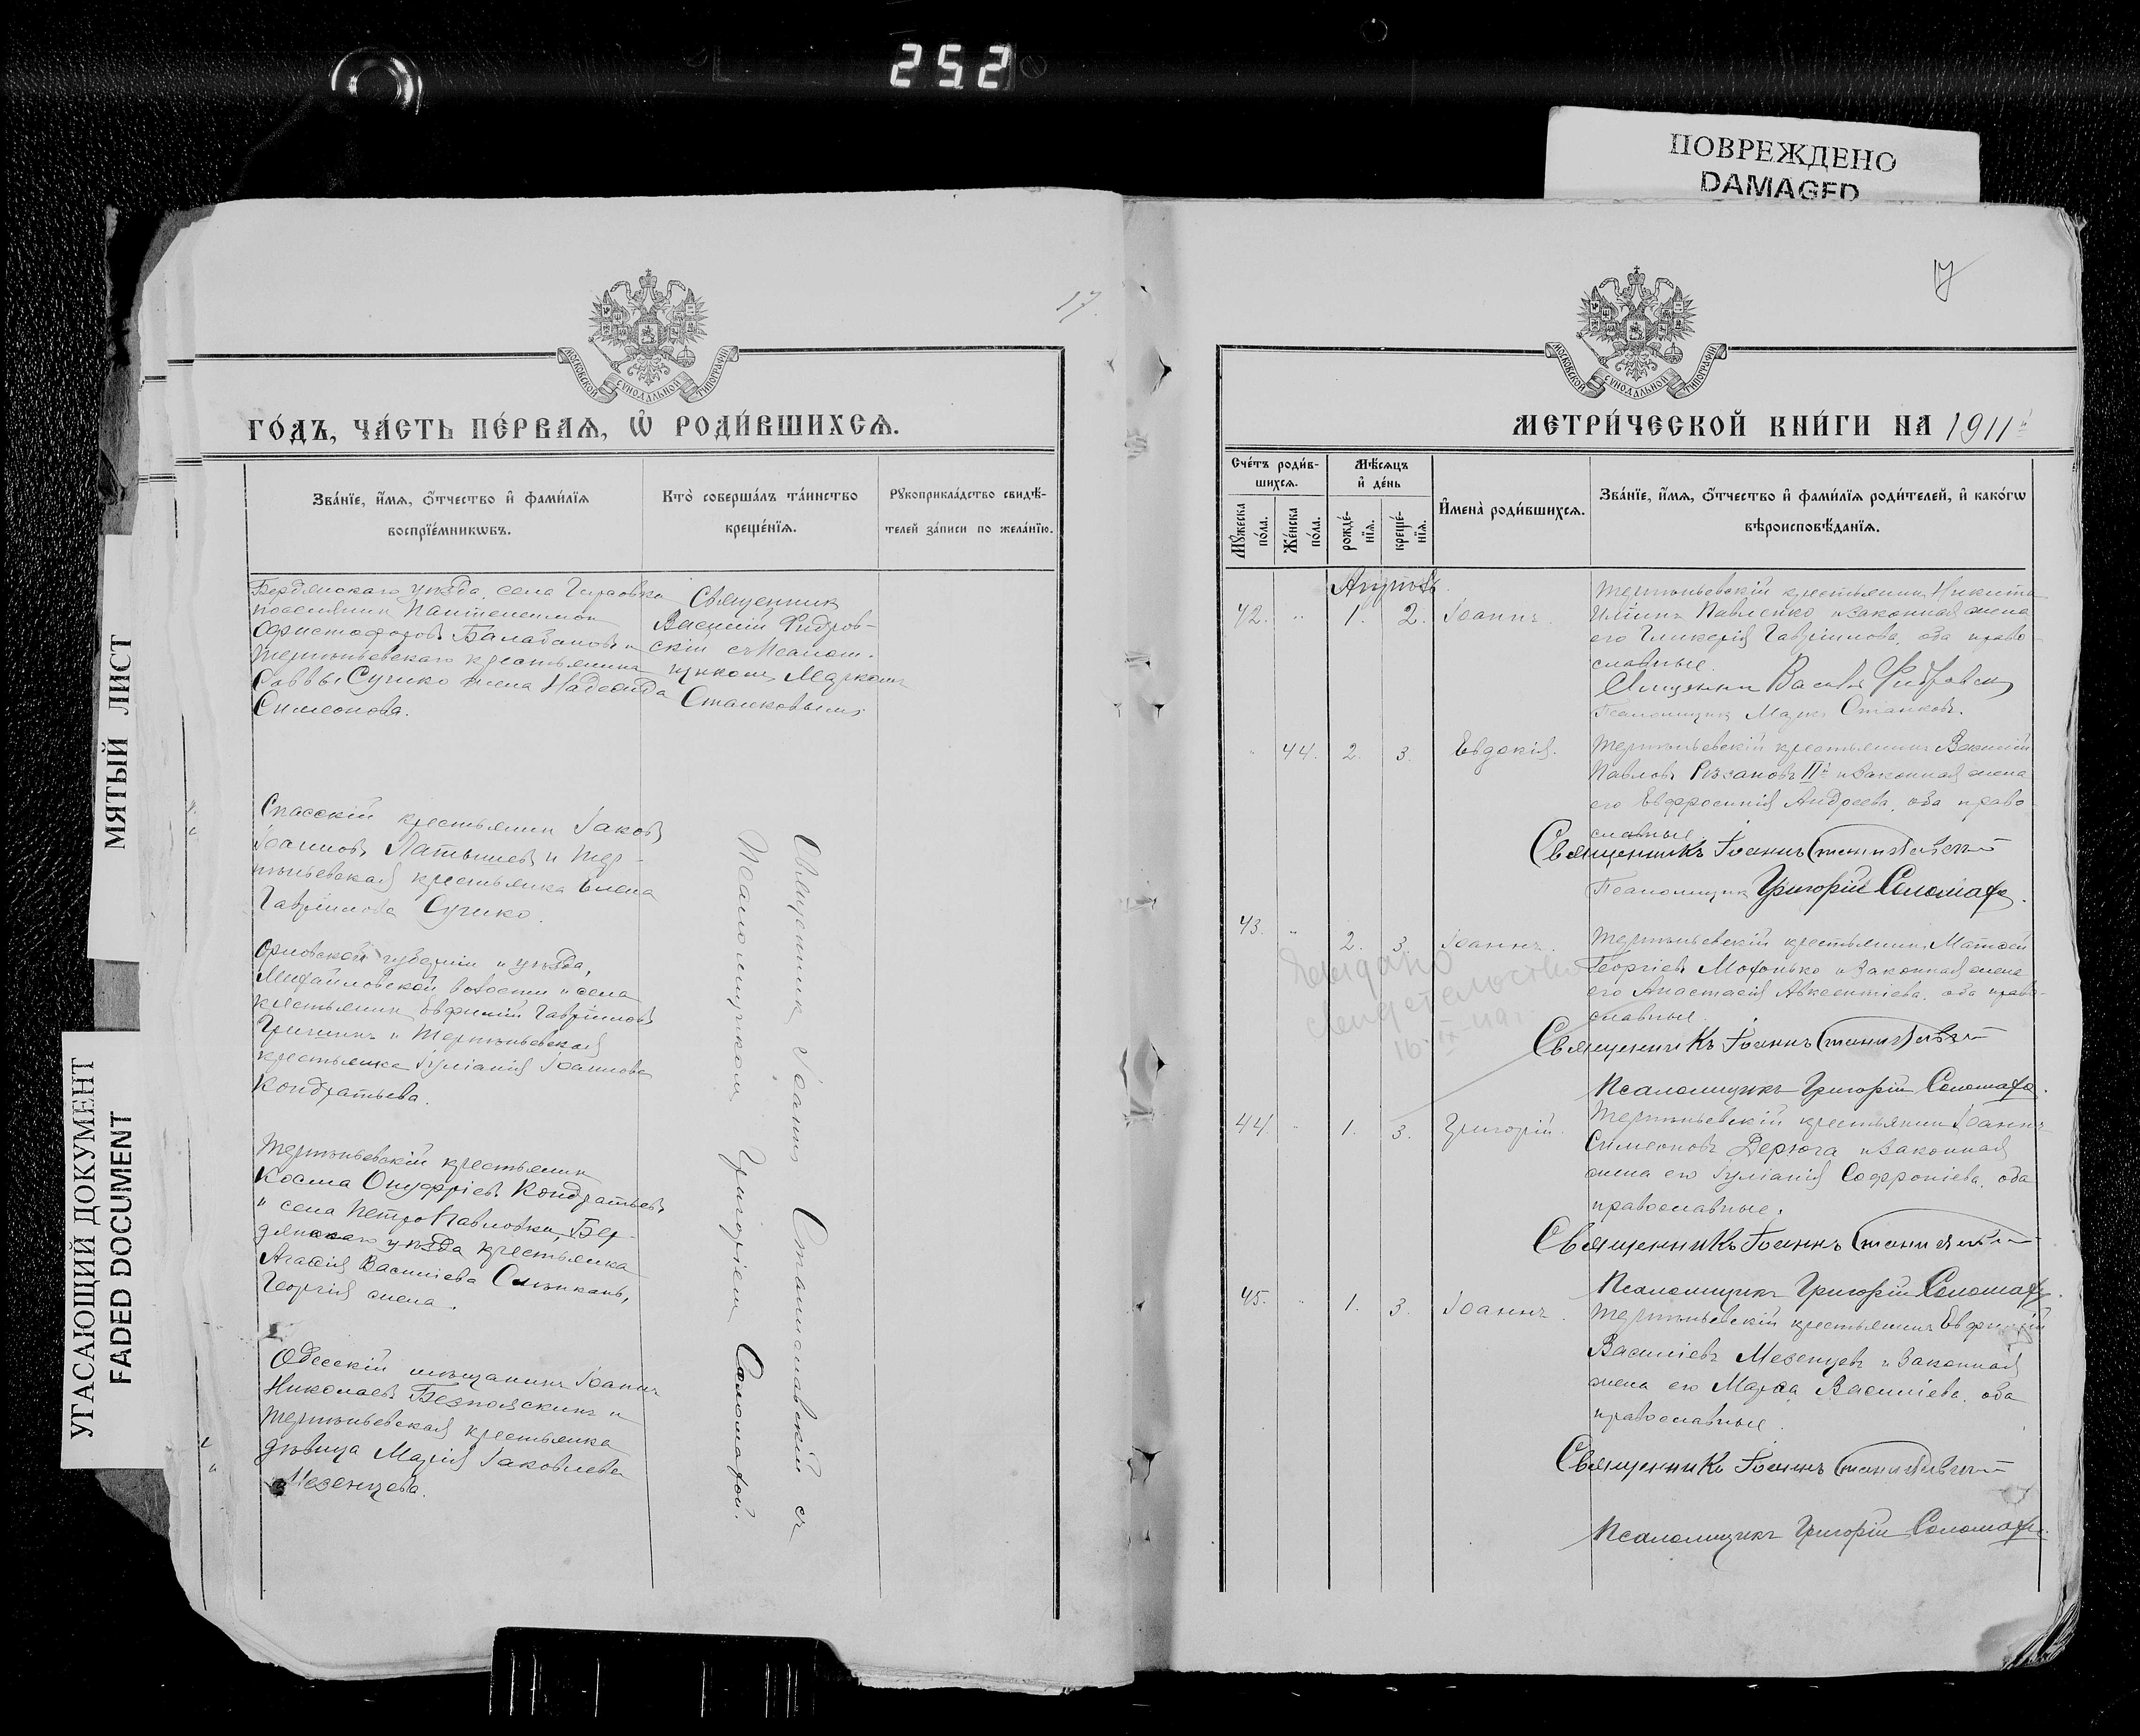 252
ПОВРЕЖДЕНО
DAMAGED
МЯТЫЙ ЛИСТ
УГАСАЮЩИЙ ДОКУМЕНТ
FADED DOCUMENT
17.
МОСКОВСКОЙ СѴНОДАЛЬНОЙ ТИПОГРАФІИ
ГО́ДЪ, ЧА́СТЬ ПЕ́РВАѦ, Ѡ҆ РОДИ́ВШИХСѦ.
Зва́нїе, и҆́мѧ, ѻ҆́тчество и҆ фами́лїѧ
воспрїе́мникѡвъ.
Кто̀ соверша́лъ та́инство
креще́нїѧ.
Рꙋкоприкла́дство свидѣ́-
телей за́писи по жела́нїю.
Бердянскаго уѣзда, села Гирсовка
поселянин Пантелеимон
Христофоровъ Балабановъ и
Терпѣньевскаго крестьянина
Саввы Сушко жена Надежда
Симеонова.
Священник
Василій Фидров-
скій съ Псалом-
щиком Марком
Сташковымъ
Спасскій крестьянин Іаковъ
Іоанновъ Латышев и Тер-
пѣньевская крестьянка Елена
Гавріилова Сушко.
Орловской губерніи и уѣзда,
Михайловской волости и села
крестьянин Евфимій Гавріиловъ
Гришинъ и Терпѣньевская
крестьянка Іуліанія Іоаннова
Кондратьева.
Терпѣньевскій крестьянин
Косма Онуфріевъ Кондратьевъ
и села Петро Павловки, Бер-
дянскаго уѣзда крестьянка
Агафія Василіева
Георгія жена.
Одесскій мѣщанинъ Іоаннъ
Николаевъ Безпоясkинъ и
Терпѣньевская крестьянка
дѣвица Марія Іаковлева
Мезенцева.
Священник Іоаннъ Станиславскій съ
Псаломщиком Григоріем Соломахой.
17
МОСКОВСКОЙ СѴНОДАЛЬНОЙ ТИПОГРАФІИ
МЕТРИ́ЧЕСКОЙ КНИ́ГИ НА 1911й
Сче́тъ роди́в-
шихсѧ.
Мꙋ́жеска по́ла.
Же́нска по́ла.
Мѣ́сѧцъ
и҆ де́нь
рожде́-нїѧ.
креще́-нїѧ.
И҆мена̀ роди́вшихсѧ.
Зва́нїе, и҆́мѧ, ѻ҆́тчество и҆ фами́лїѧ роди́телей, и҆ како́гѡ
вѣроисповѣ́данїѧ.
Августъ.
42. " 1. 2. Іоаннъ.
Терпѣньевскій крестьянин Никита
Иліинъ Павленко и законная жена
его Гликерія Гавріилова, оба право-
славные.
Священник Василій Фидровскій
Псаломщик Маркъ Сташковъ.
" 44. 2. 3. Евдокія.
Терпѣньевскій крестьянинъ Василій
Павловъ Рязановъ IIй и законная жена
его Евфросинія Андреева, оба право-
славные.
Священникъ Іоаннъ Станиславскій
Псаломщик Григорій Соломаха.
43. " 2. 3. Іоаннъ.
Терпѣньевскій крестьянин Матѳей
Георгіевъ Мохонько и законная жена
его Анастасія Авксентіева, оба право-
славные.
Выдано
свидетельство
16-IX
Священникъ Іоаннъ Станиславскій
Псаломщикъ Григорій Соломаха.
44. " 1. 3. Григорій.
Терпѣньевскій крестьянин Іоаннъ
Симеоновъ Дерюга и законная
жена его Іуліанія Софроніева, оба
православные.
Священникъ Іоаннъ Станиславскій
Псаломщикъ Григорій Соломаха.
45. " 1. 3. Іоаннъ.
Терпѣньевскій крестьянинъ Евфимій
Василіевъ Мезенцевъ и законная
жена его Марѳа Василіева, оба
православные.
Священникъ Іоаннъ Станиславскій
Псаломщикъ Григорій Соломаха.